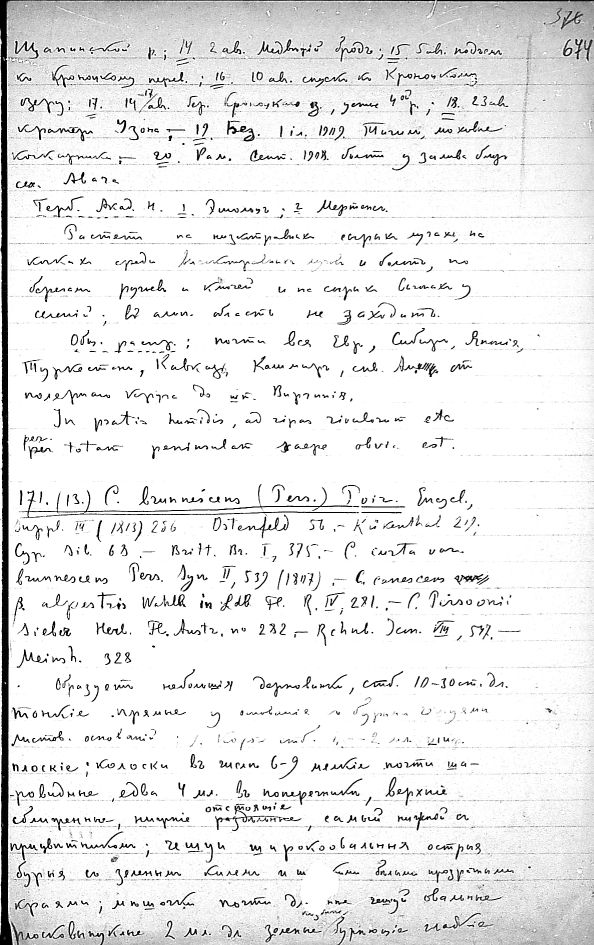 376
674
Щапинской р.; 14 2 ав. Медвежий бродъ; 15 5 ав. подъем
къ Кроноцкому перев.; 16. 10 ав. спуск къ Кроноцкому
озеру; 17. 14–17/ав. бер. Кроноцкаго о., устье 4ой р.; 18. 23 ав
кратеръ Узона; — 19. Без. 1 іл. 1909. Тигиль, моховые
кочкарники; — 20. Рам. Сент. 1908. болот у залива близ
сел. Авача
Герб. Акад. Н. 1. Эшольц; 2 Мертенс.
Растетъ на низкотравных сырых лугахъ, на
кочках среди лугов и болотъ, по
берегам ручьев и ключей и на сырых у
селений; въ альп. область не заходитъ.
Общ. распр.; почти вся Евр., Сибирь, Японія,
Туркестан, Кавказ, Кашмир, сев. Америк. от
полярнаго круга до шт. Виргинія.
In pratis humidis, ad ripas rivulorum etc
per
per totam peninsulam saepe obvia est.
171. (13.) C. brunnescens (Pers.) Poir. Encycl.,
Suppl. III (1813) 286 Ostenfeld 56. — Kükenthal 219,
Cyp. Sib. 68. — Britt. Br. I, 375. — C. curta var.
brunnescens Pers. Syn II, 539 (1807). — C. canescens
β alpestris Wahlb in Ldb Fl. R. IV, 281. — C. Persoonii
Sieber Herb. Fl. Austr. no 282. — Rchnb. Icon. VIII, 547. —
Meinsh. 328
Образуетъ небольшія дерновинки, стб. 10–30 ст. дл.
тонкіе прямые у основанія с бурыми чешуями
листов. основаній 1–2 мл. шир.
плоскіе; колоски въ числѣ 6–9 мелкіе почти ша-
ровидные, едва 4 мл. въ поперечникѣ, верхніе
отстоящіе
сближенные, нижніе раздѣльные, самый нижній съ
прицвѣтником; чешуи широкоовальныя острыя
бурыя со зеленым килем и бѣлыми прозрачными
краями; мѣшочки почти дл. чешуй овальные
плосковыпуклые 2 мл. дл. зеленые буреющіе гладкіе